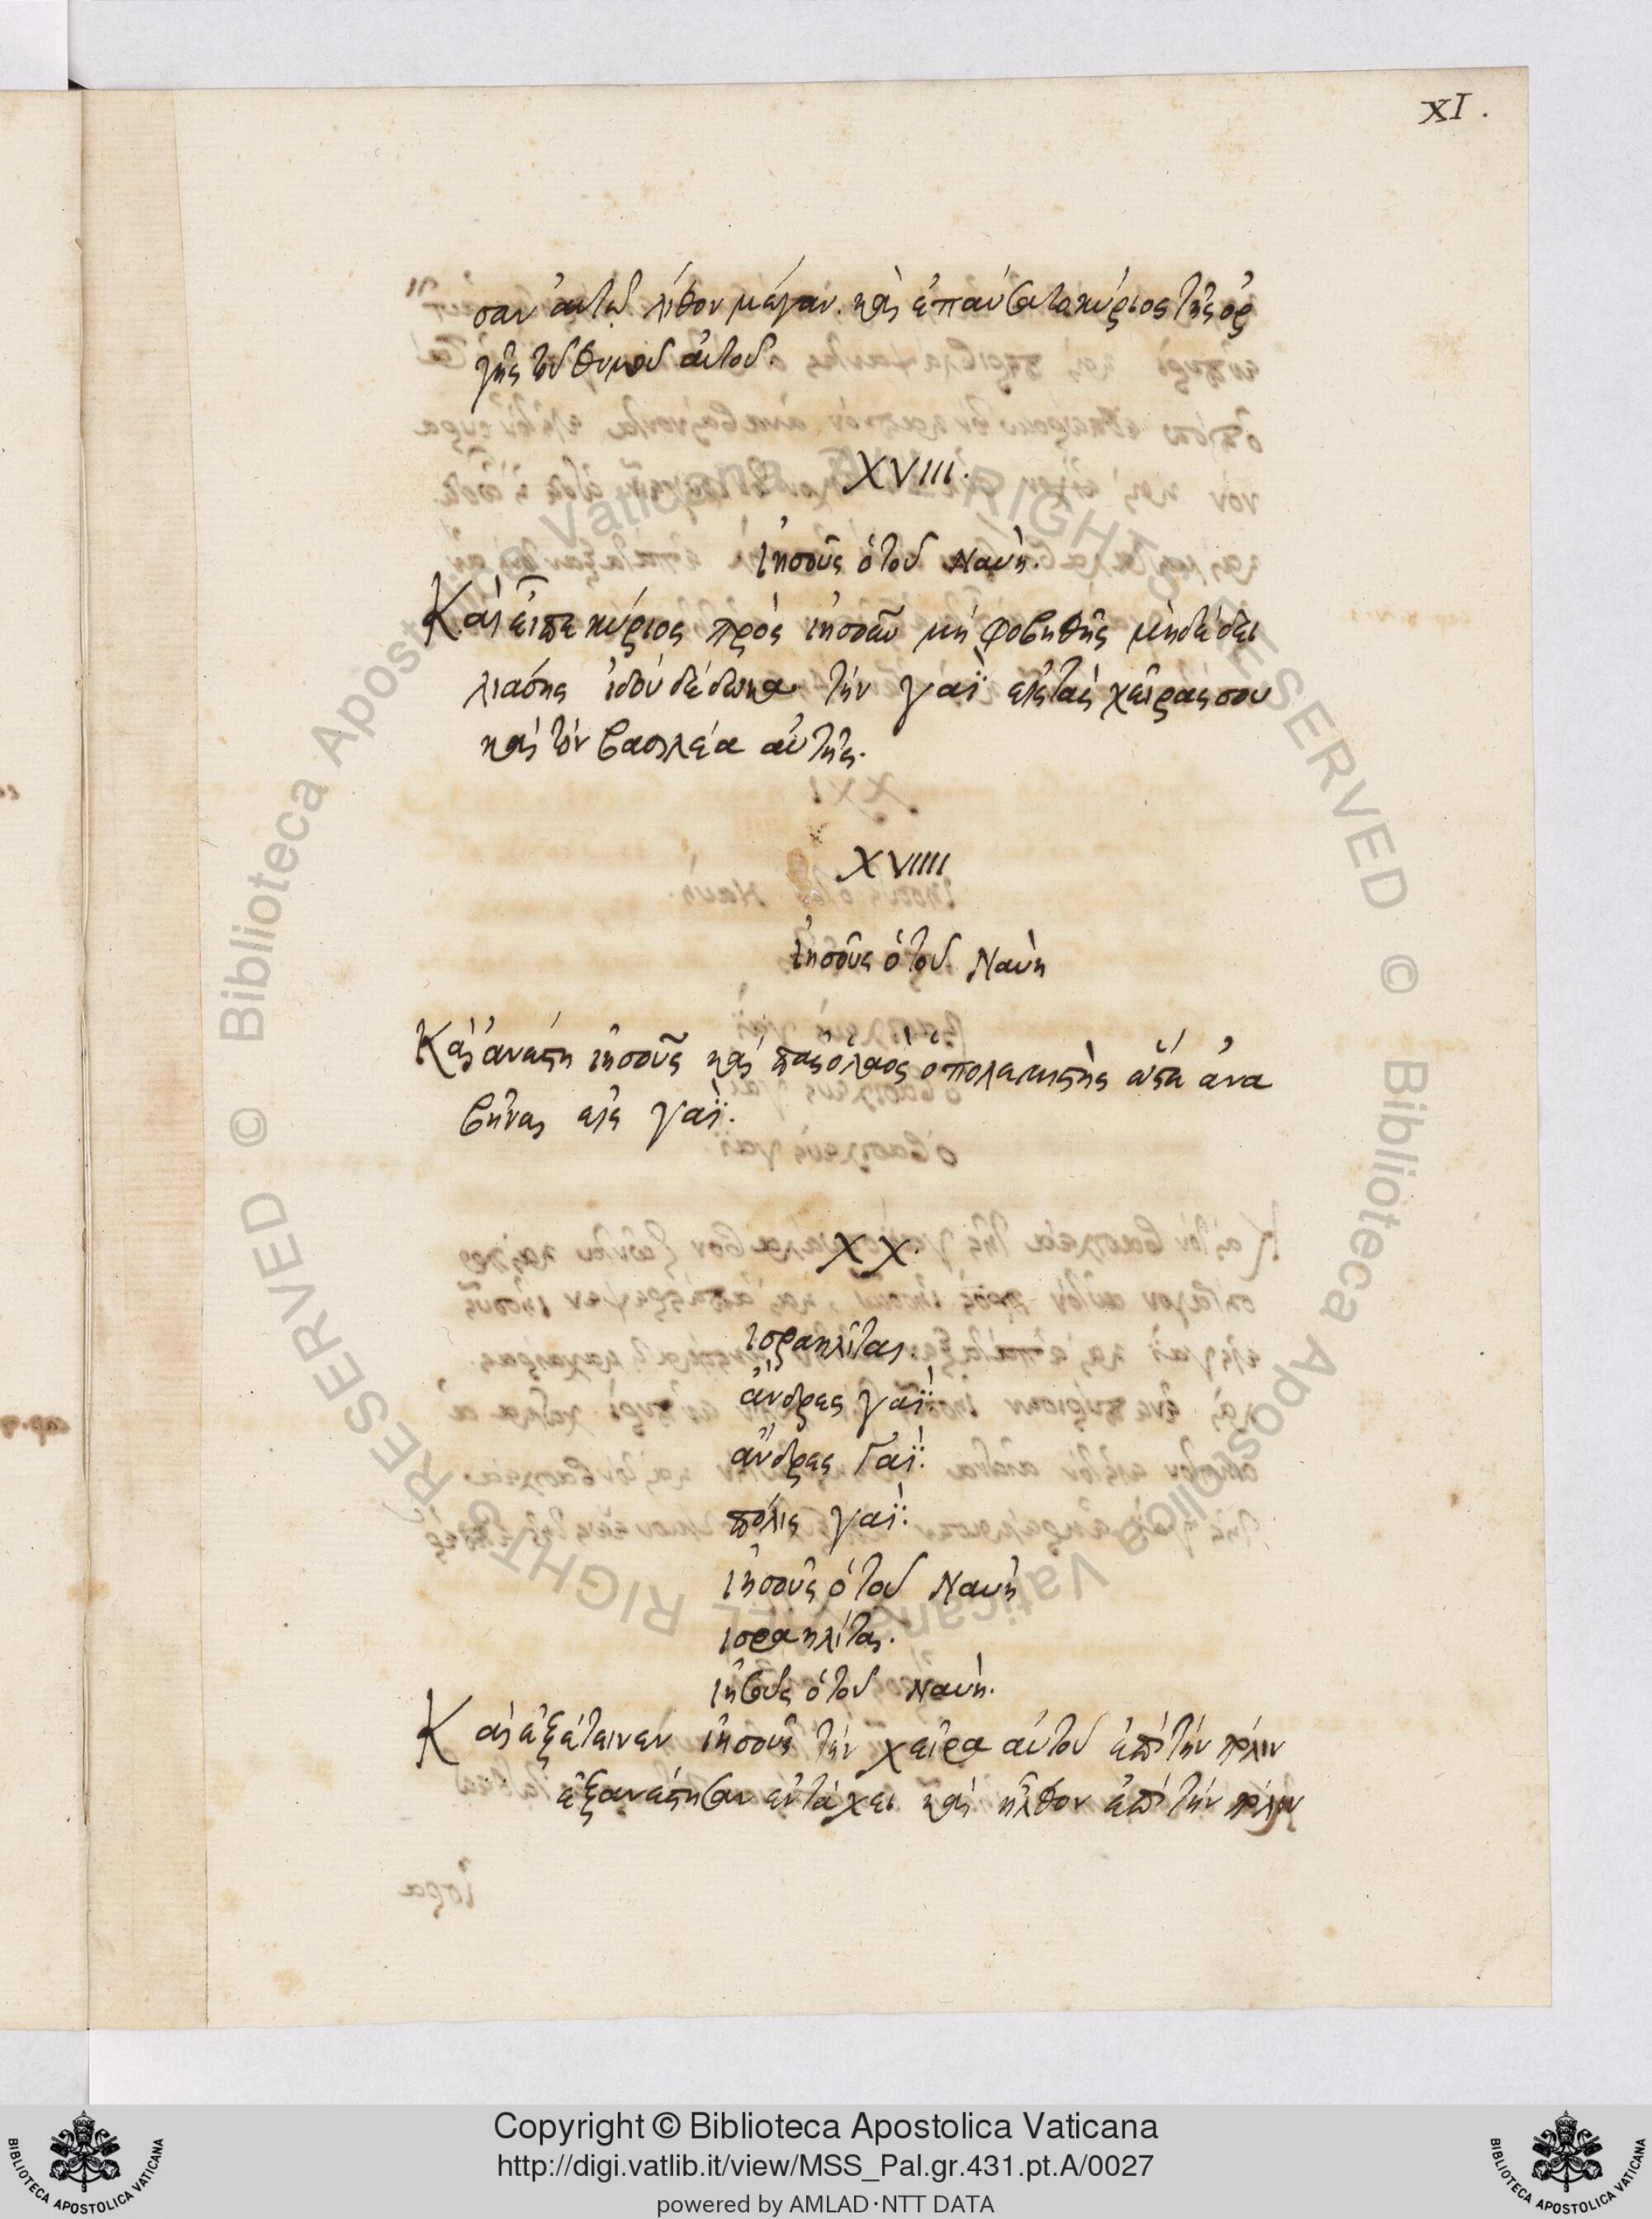 XI.
σαν ἀυτῷ λίθον μέγαν. καὶ ἐπαύσατο κύριος τῆς ὀρ
γῆς τοῦ θυμοῦ ἀυτοῦ.
XVIII.
ἰησοῦς ὁ τοῦ Ναυὴ.
Καὶ εἶπε κύριος πρὸς ἰησοῦν μὴ φοβηθῆς μηδὲ δει
λιάσης ἰδοὺ δέδωκα τὴν γαῒ εἰς τὰς χεῖρας σου
καὶ τὸν βασιλέα αὐτῆς.
XVIIII
ἰησοῦς ὁ τοῦ Ναυὴ
Καὶ ἀνάστη ἰησοῦς καὶ πᾶς ὁ λαὸς ὁ πολεμιστὴς ὥστε ἀνα
βῆναι εἰς γαΐ.
XX.
ἰσραηλῖται.
ἄνδρες γαΐ.
ἄνδρες Γαΐ.
πόλις γαΐ.
ἰησοῦς ὁ τοῦ Ναυὴ
ἰσραηλίται.
ἰησοῦς ὁ τοῦ Ναυὴ.
Καὶ ἐξέτεινεν ἰησοῦς τὴν χεῖρα αὐτοῦ ἐπὶ τὴν πόλιν
ἐξανέστησαν ἐν τάχει καὶ ἦλθον ἐπὶ τὴν πόλιν
Copyright © Biblioteca Apostolica Vaticana
http://digi.vatlib.it/view/MSS_Pal.gr.431.pt.A/0027
powered by AMLAD·NTT DATA